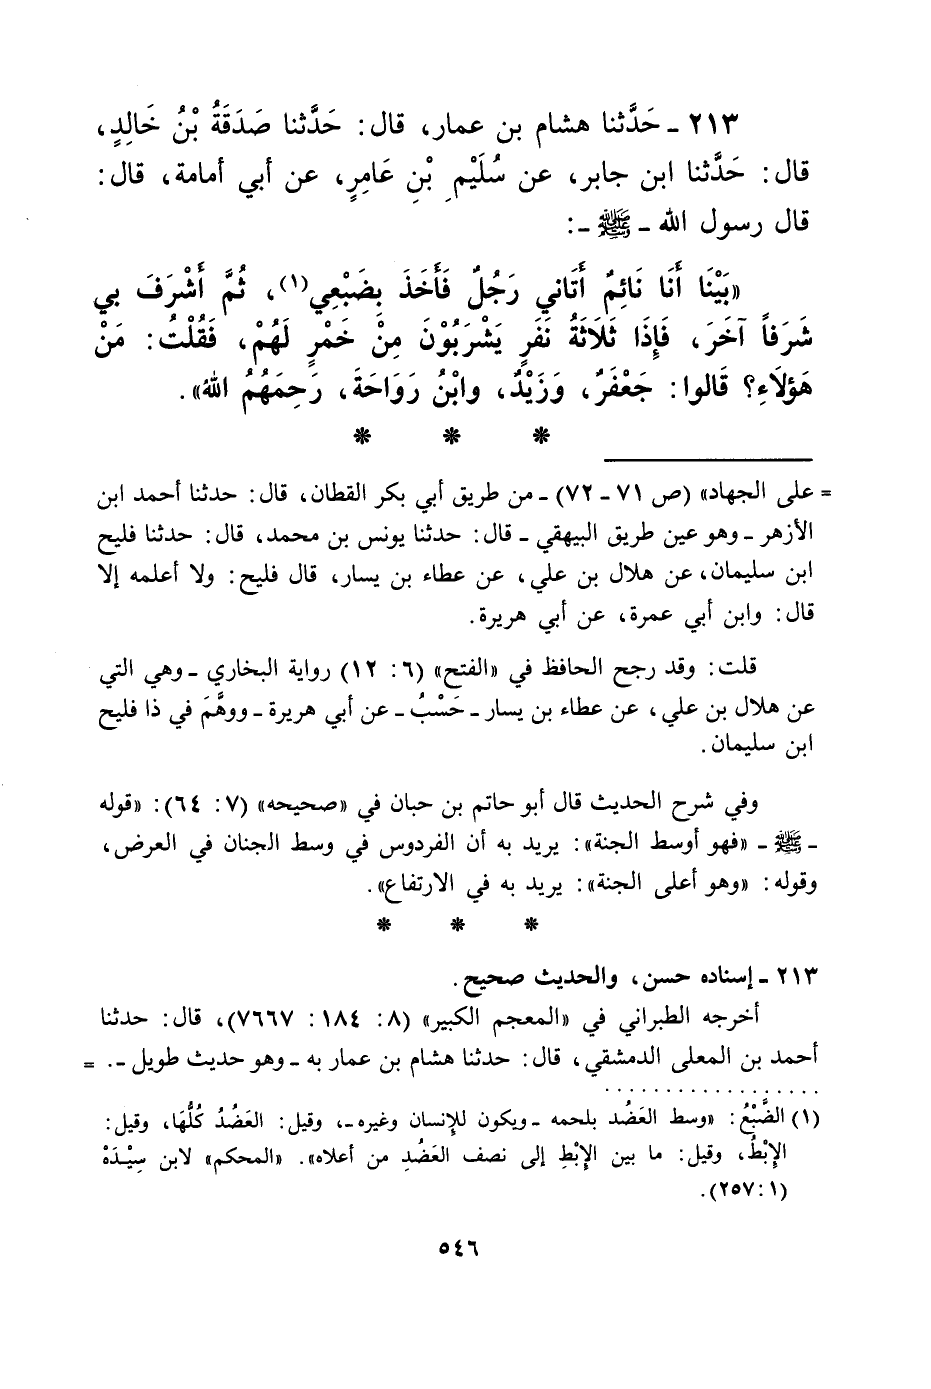 ٢١٣ ـ حَدَّثنا هشام بن عمار، قال: حَدَّثنا صَدَقَةُ بْنُ خَالِدٍ،
قال: حَدَّثنا ابن جابر، عن سُلَيْمِ بْنِ عَامِرٍ، عن أبي أمامة، قال:
قال رسول الله ـ ﷺ ـ:
«بَيْنَا أَنَا نَائِمٌ أَتَاني رَجُلٌ فَأَخَذَ بِضَبْعِي(١)، ثُمَّ أَشْرَفَ بي
شَرَفاً آخَرَ، فَإِذَا ثَلَاثَةُ نَفَرٍ يَشْرَبُوْنَ مِنْ خَمْرٍ لَهُمْ، فَقُلْتُ: مَنْ
هَؤلَاءِ؟ قَالوا: جَعْفَرٌ، وَزَيْدٌ، وابْنُ رَوَاحَةَ، رَحِمَهُمُ اللهُ».
* * *
= على الجهاد» (ص ٧١ ـ ٧٢) ـ من طريق أبي بكر القطان، قال: حدثنا أحمد ابن
الأزهر ـ وهو عين طريق البيهقي ـ قال: حدثنا يونس بن محمد، قال: حدثنا فليح
ابن سليمان، عن هلال بن علي، عن عطاء بن يسار، قال فليح: ولا أعلمه إلا
قال: وابن أبي عمرة، عن أبي هريرة.
قلت: وقد رجح الحافظ في «الفتح» (٦: ١٢) رواية البخاري ـ وهي التي
عن هلال بن علي، عن عطاء بن يسار ـ حَسْبُ ـ عن أبي هريرة ـ ووهَّمَ في ذا فليح
ابن سليمان.
وفي شرح الحديث قال أبو حاتم بن حبان في «صحيحه» (٧: ٦٤): «قوله
ـ ﷺ ـ «فهو أوسط الجنة»: يريد به أن الفردوس في وسط الجنان في العرض،
وقوله: «وهو أعلى الجنة»: يريد به في الارتفاع».
* * *
٢١٣ ـ إسناده حسن، والحديث صحيح.
أخرجه الطبراني في «المعجم الكبير» (٨: ١٨٤: ٧٦٦٧)، قال: حدثنا
أحمد بن المعلى الدمشقي، قال: حدثنا هشام بن عمار به ـ وهو حديث طويل ـ. =
(١) الضَّبْعُ: «وسط العَضُد بلحمه ـ ويكون للإنسان وغيره ـ، وقيل: العَضُدُ كُلُّهَا، وقيل:
الإِبْطُ، وقيل: ما بين الإِبْطِ إلى نصف العَضُدِ من أعلاه». «المحكم» لابن سِيْدَهْ
(٢٥٧:١).
٥٤٦